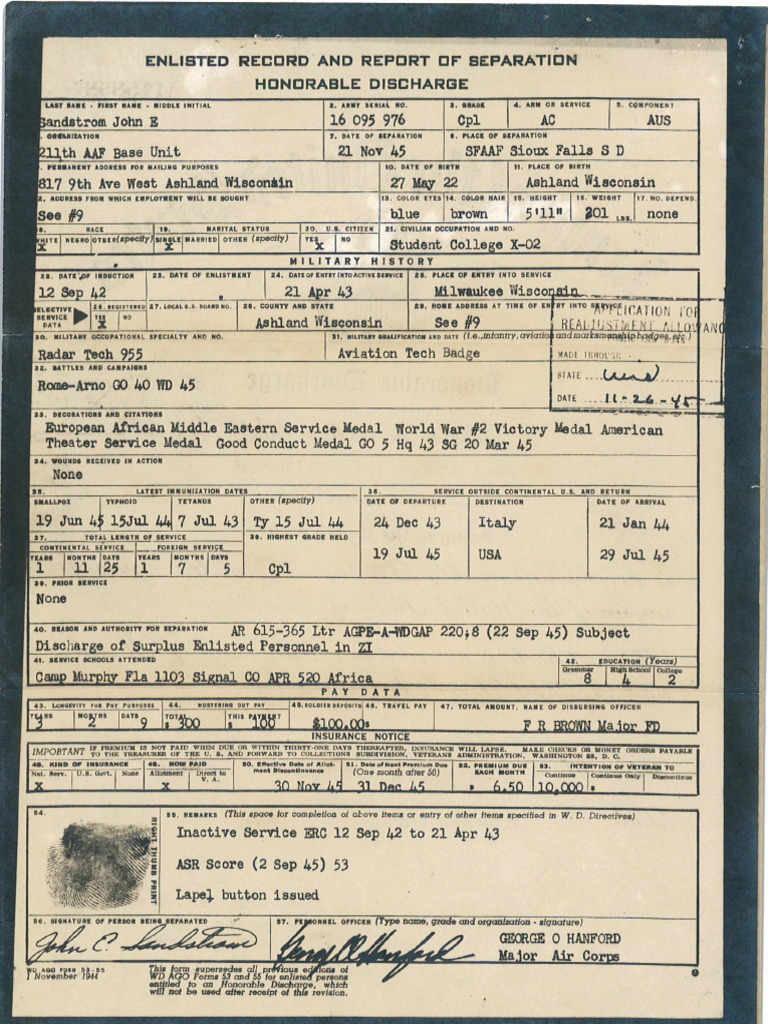 ENLISTED RECORD AND REPORT OF SEPARATION
HONORABLE DISCHARGE
LAST NAME - FIRST NAME - MIDDLE INITIAL 2. ARMY SERIAL NO. 3. GRADE 4. ARM OR SERVICE 5. COMPONENT
Sandstrom John E 16 095 976 Cpl AC AUS
. ORGANIZATION 7. DATE OF SEPARATION 8. PLACE OF SEPARATION
211th AAF Base Unit 21 Nov 45 SFAAF Sioux Falls S D
. PERMANENT ADDRESS FOR MAILING PURPOSES 10. DATE OF BIRTH 11. PLACE OF BIRTH
817 9th Ave West Ashland Wisconsin 27 May 22 Ashland Wisconsin
2. ADDRESS FROM WHICH EMPLOYMENT WILL BE SOUGHT 13. COLOR EYES 14. COLOR HAIR 15. HEIGHT 16. WEIGHT 17. NO. DEPEND.
See #9 blue brown 5'11" 201 LBS. none
18. RACE 19. MARITAL STATUS 20. U.S. CITIZEN 21. CIVILIAN OCCUPATION AND NO.
WHITE NEGRO OTHER (specify) SINGLE MARRIED OTHER (specify) YES NO
X X X Student College X-02
MILITARY HISTORY
22. DATE OF INDUCTION 23. DATE OF ENLISTMENT 24. DATE OF ENTRY INTO ACTIVE SERVICE 25. PLACE OF ENTRY INTO SERVICE
12 Sep 42 21 Apr 43 Milwaukee Wisconsin
SELECTIVE SERVICE DATA 26. REGISTERED YES NO 27. LOCAL S.S. BOARD NO. 28. COUNTY AND STATE 29. HOME ADDRESS AT TIME OF ENTRY INTO SERVICE
X Ashland Wisconsin See #9
APPLICATION FOR
READJUSTMENT ALLOWANC
MADE THROUGH
STATE
DATE 11-26-45
30. MILITARY OCCUPATIONAL SPECIALTY AND NO. 31. MILITARY QUALIFICATION AND DATE (i.e., infantry, aviation and marksmanship badges, etc.)
Radar Tech 955 Aviation Tech Badge
32. BATTLES AND CAMPAIGNS
Rome-Arno GO 40 WD 45
33. DECORATIONS AND CITATIONS
European African Middle Eastern Service Medal World War #2 Victory Medal American
Theater Service Medal Good Conduct Medal GO 5 Hq 43 SG 20 Mar 45
34. WOUNDS RECEIVED IN ACTION
None
35. LATEST IMMUNIZATION DATES 36. SERVICE OUTSIDE CONTINENTAL U.S. AND RETURN
SMALLPOX TYPHOID TETANUS OTHER (specify) DATE OF DEPARTURE DESTINATION DATE OF ARRIVAL
19 Jun 45 15Jul 44 7 Jul 43 Ty 15 Jul 44 24 Dec 43 Italy 21 Jan 44
37. TOTAL LENGTH OF SERVICE 38. HIGHEST GRADE HELD
CONTINENTAL SERVICE FOREIGN SERVICE
19 Jul 45 USA 29 Jul 45
YEARS MONTHS DAYS YEARS MONTHS DAYS
1 11 25 1 7 5 Cpl
39. PRIOR SERVICE
None
40. REASON AND AUTHORITY FOR SEPARATION AR 615-365 Ltr AGPE-A-WDGAP 220.8 (22 Sep 45) Subject
Discharge of Surplus Enlisted Personnel in ZI
41. SERVICE SCHOOLS ATTENDED 42. EDUCATION (Years)
Grammar High School College
Camp Murphy Fla 1103 Signal CO APR 520 Africa 8 4 2
PAY DATA
43. LONGEVITY FOR PAY PURPOSES 44. MUSTERING OUT PAY 45. SOLDIER DEPOSITS 46. TRAVEL PAY 47. TOTAL AMOUNT. NAME OF DISBURSING OFFICER
YEARS MONTHS DAYS TOTAL THIS PAYMENT
3 2 9 $300 $ 100 $100.00 F R BROWN Major FD
INSURANCE NOTICE
IMPORTANT IF PREMIUM IS NOT PAID WHEN DUE OR WITHIN THIRTY-ONE DAYS THEREAFTER, INSURANCE WILL LAPSE. MAKE CHECKS OR MONEY ORDERS PAYABLE
TO THE TREASURER OF THE U. S. AND FORWARD TO COLLECTIONS SUBDIVISION, VETERANS ADMINISTRATION, WASHINGTON 25, D. C.
48. KIND OF INSURANCE 49. HOW PAID 50. Effective Date of Allotment Discontinuance 51. Date of Next Premium Due (One month after 50) 52. PREMIUM DUE EACH MONTH 53. INTENTION OF VETERAN TO
Nat. Serv. U.S. Govt. None Allotment Direct to V. A. Continue Continue Only Discontinue
X X 30 Nov 45 31 Dec 45 $ 6.50 10,000 $
54. 55. REMARKS (This space for completion of above items or entry of other items specified in W. D. Directives)
RIGHT THUMB PRINT
Inactive Service ERC 12 Sep 42 to 21 Apr 43
ASR Score (2 Sep 45) 53
Lapel button issued
56. SIGNATURE OF PERSON BEING SEPARATED 57. PERSONNEL OFFICER (Type name, grade and organization - signature)
John E. Sandstrom George O Hanford GEORGE O HANFORD
Major Air Corps
WD AGO FORM 53-55
1 November 1944
This form supersedes all previous editions of
WD AGO Forms 53 and 55 for enlisted persons
entitled to an Honorable Discharge, which
will not be used after receipt of this revision.